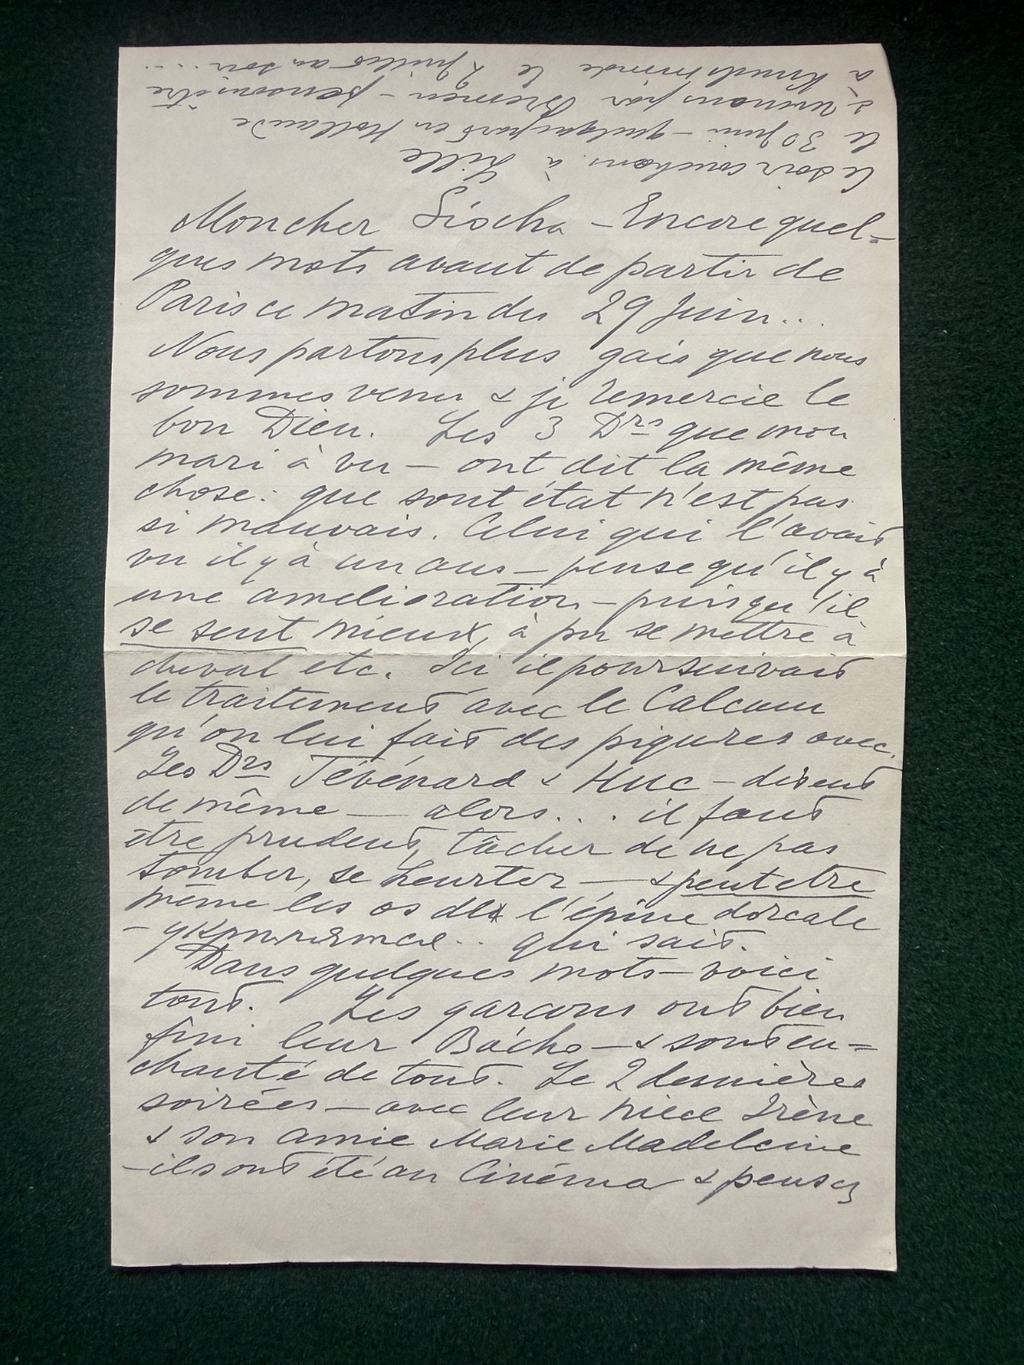 Mon cher Gischa – Encore quel=
ques mots avant de partir de
Paris ce matin du 29 Juin...
Nous partons plus gais que nous
sommes venu & je remercie le
bon Dieu. Les 3 Drs que mon
mari à vu – ont dit la même
chose: que sont état n'est pas
si mauvais. Celui qui l'avait
vu il y à un ans – pense qu'il y à
une amelioration – puisqu'il
se sent mieux, à pu se mettre à
cheval etc. Ici il poursuivait
le traitement avec le Calcium
qu'on lui fait des piqures avec.
Les Drs Tévénard & Huc – disent
de même – alors... il faut
être prudent, tâcher de ne pas
tomber, se heurter – & peut etre
même les os de l'épine dorcale
qui sait.
Dans quelques mots – voici
tout. Les garcons ont bien
fini leur Bácho – & sont en=
chanté de tout. Le 2 dernières
soirées – avec leur niece Irène
& son amie Marie Madeleine
– ils ont été au Cinéma & pensez
Ce soir couchons à Lille
le 30 Juin – quelquepart en Hollande
& venons par Bremen – pensons être
à Knudsminde le 2 Juillet au soir....